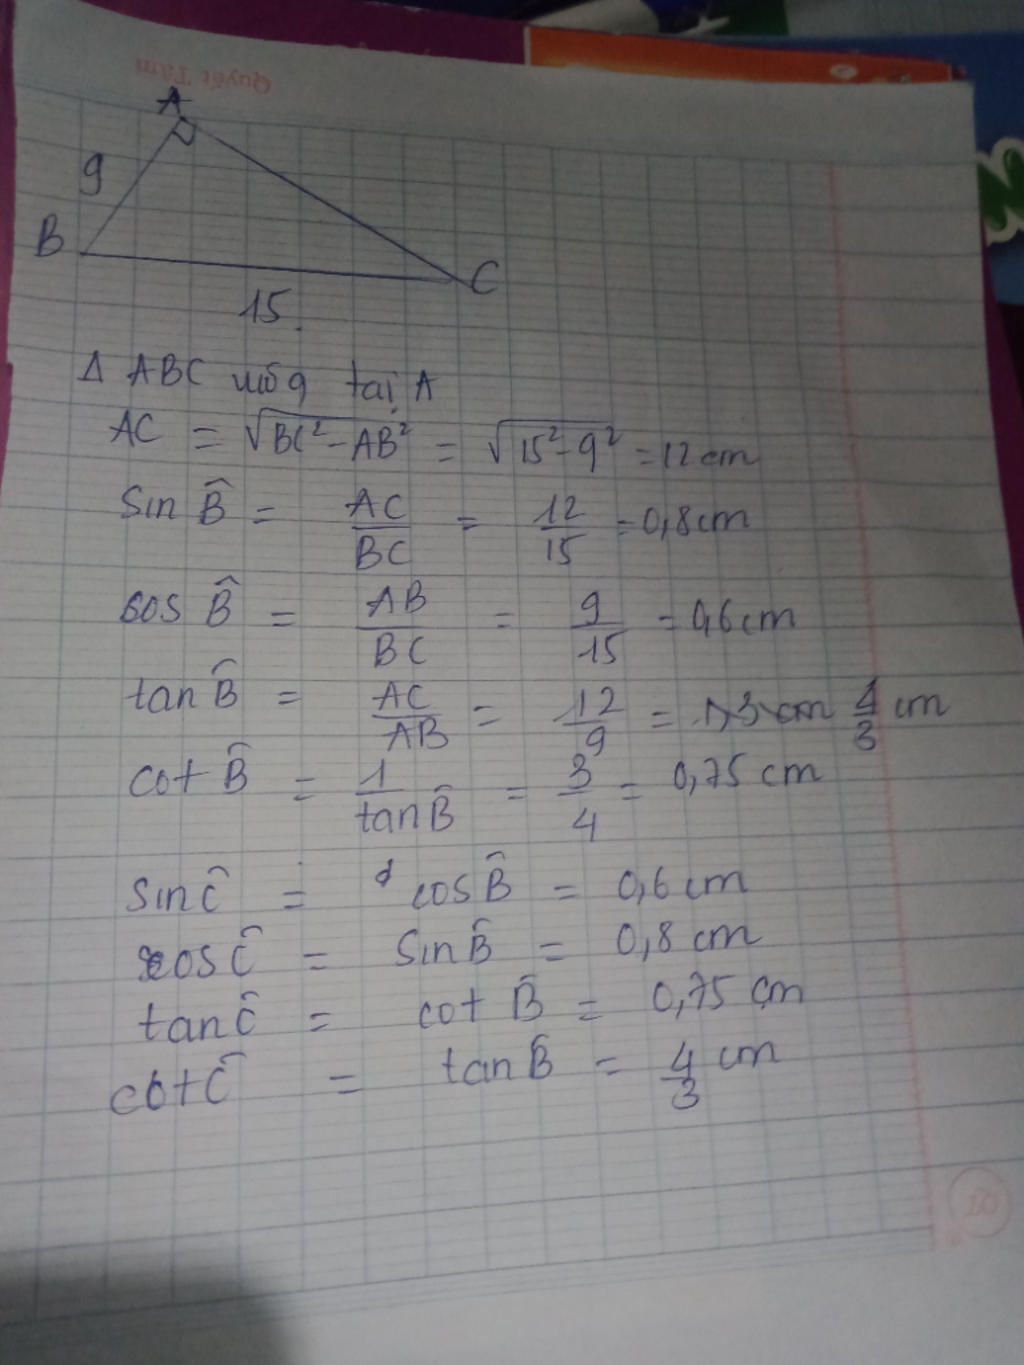 Quyết Tâm
A
9
B
C
15
Δ ABC vuông tại A
AC = √BC² - AB² = √15² - 9² = 12 cm
Sin B̂ = AC/BC = 12/15 = 0,8 cm
cos B̂ = AB/BC = 9/15 = 0,6 cm
tan B̂ = AC/AB = 12/9 = 1,3 cm 4/3 cm
cot B̂ = 1/tan B̂ = 3/4 = 0,75 cm
Sin Ĉ = cos B̂ = 0,6 cm
cos Ĉ = Sin B̂ = 0,8 cm
tan Ĉ = cot B̂ = 0,75 cm
cot Ĉ = tan B̂ = 4/3 cm